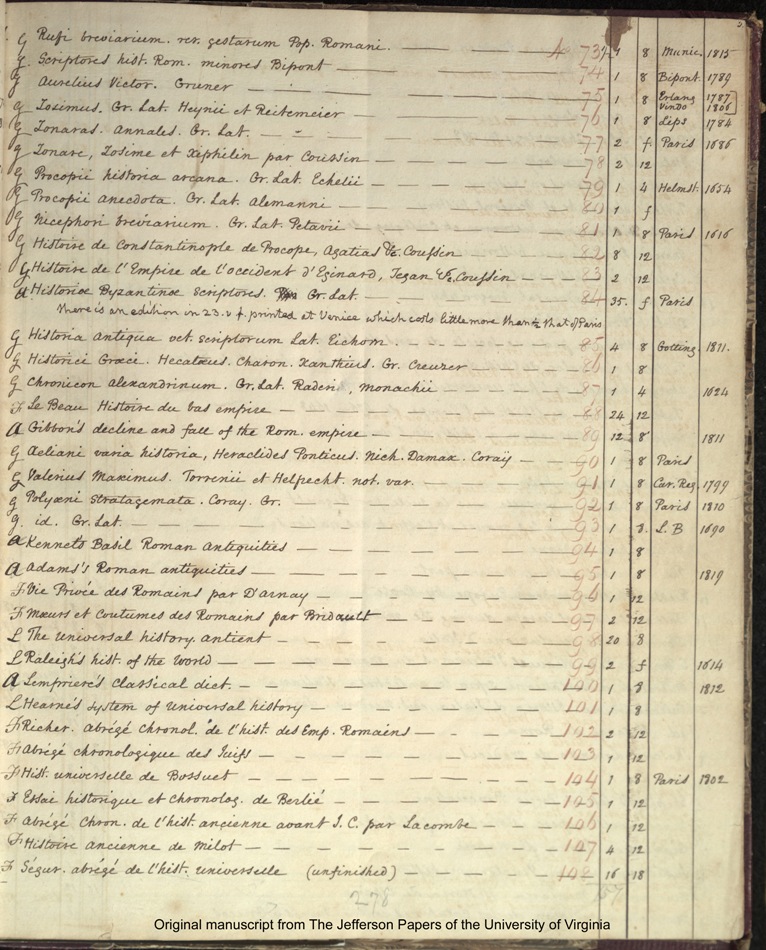 G Rufi breviarium. rer. gestarum Pop. Romani. — 73 1 8 Munic. 1815
G Scriptores hist. Rom. minores Bipont — 74 1 8 Bipont. 1789
G Aurelius Victor. Gruner — 75 1 8 Erlang 1787 Vindo 1806
G Zosimus. Gr. Lat. Heynii et Reitemeier — 76 1 8 Lips 1784
G Zonaras. Annales. Gr. Lat. — 77 2 f. Paris 1686
G Zonare, Zosime et Xiphilin par Coussin — 78 2 12
G Procopii historia arcana. Gr. Lat. Echelii — 79 1 4 Helmst. 1654
G Procopii anecdota. Gr. Lat. Alemanni — 80 1 f
G Nicephori breviarium. Gr. Lat. Petavii — 81 1 8 Paris 1616
G Histoire de Constantinople de Procope, Agatias &c. Coussin — 82 8 12
G Histoire de l'Empire de l'occident d'Eginard, Tegan &c. Coussin — 83 2 12
a Historiae Byzantinae Scriptores. Gr. Lat. — 84 35. f Paris
there is an edition in 23. v f. printed at Venice which costs little more than ½ that of Paris
G Historia Antiqua vet. scriptorum Lat. Eichorn. — 85 4 8 Gotting 1811.
G Historici Graeci. Hecataeus. Charon. Xanthius. Gr. Creuzer — 86 1 8
G Chronicon Alexandrinum. Gr. Lat. Raderi, Monachii — 87 1 4 1624
F Le Beau Histoire du bas empire — 88 24 12
a Gibbon's decline and fall of the Rom. empire — 89 12 8 1811
G Aeliani varia historia, Heraclides Ponticus. Nich. Damax. Coraÿ — 90 1 8 Paris
G Valerius Maximus. Torrenii et Helfrecht. not. var. — 91 1 8 Cur. Reg. 1799
G Polyaeni Stratagemata. Coray. Gr. — 92 1 8 Paris 1810
G. id. Gr. Lat. — 93 1 8. L. B 1690
a Kennet's Basil Roman Antiquities — 94 1 8
a Adams's Roman antiquities — 95 1 8 1819
F Vie Privée des Romains par D'arnay — 96 1 12
F Mœurs et Coutumes des Romains par Bridault — 97 2 12
L The Universal history. antient — 98 20 8
L Raleigh's hist. of the World — 99 2 f 1614
a Lempriere's Classical dict. — 100 1 8 1812
L Hearne's System of Universal history — 101 1 8
F Richer. Abrégé Chronol. de l'hist. des Emp. Romains — 102 2 12
F Abrégé chronologique des Juifs — 103 1 12
F Hist. universelle de Bossuet — 104 1 8 Paris 1802
F Essai historique et chronolog. de Berlié — 105 1 12
F Abrégé Chron. de l'hist. ancienne avant J. C. par Lacombe — 106 1 12
F Histoire ancienne de Milot — 107 4 12
F Ségur. abrégé de l'hist. universelle (unfinished) — 108 16 18
278
Original manuscript from The Jefferson Papers of the University of Virginia